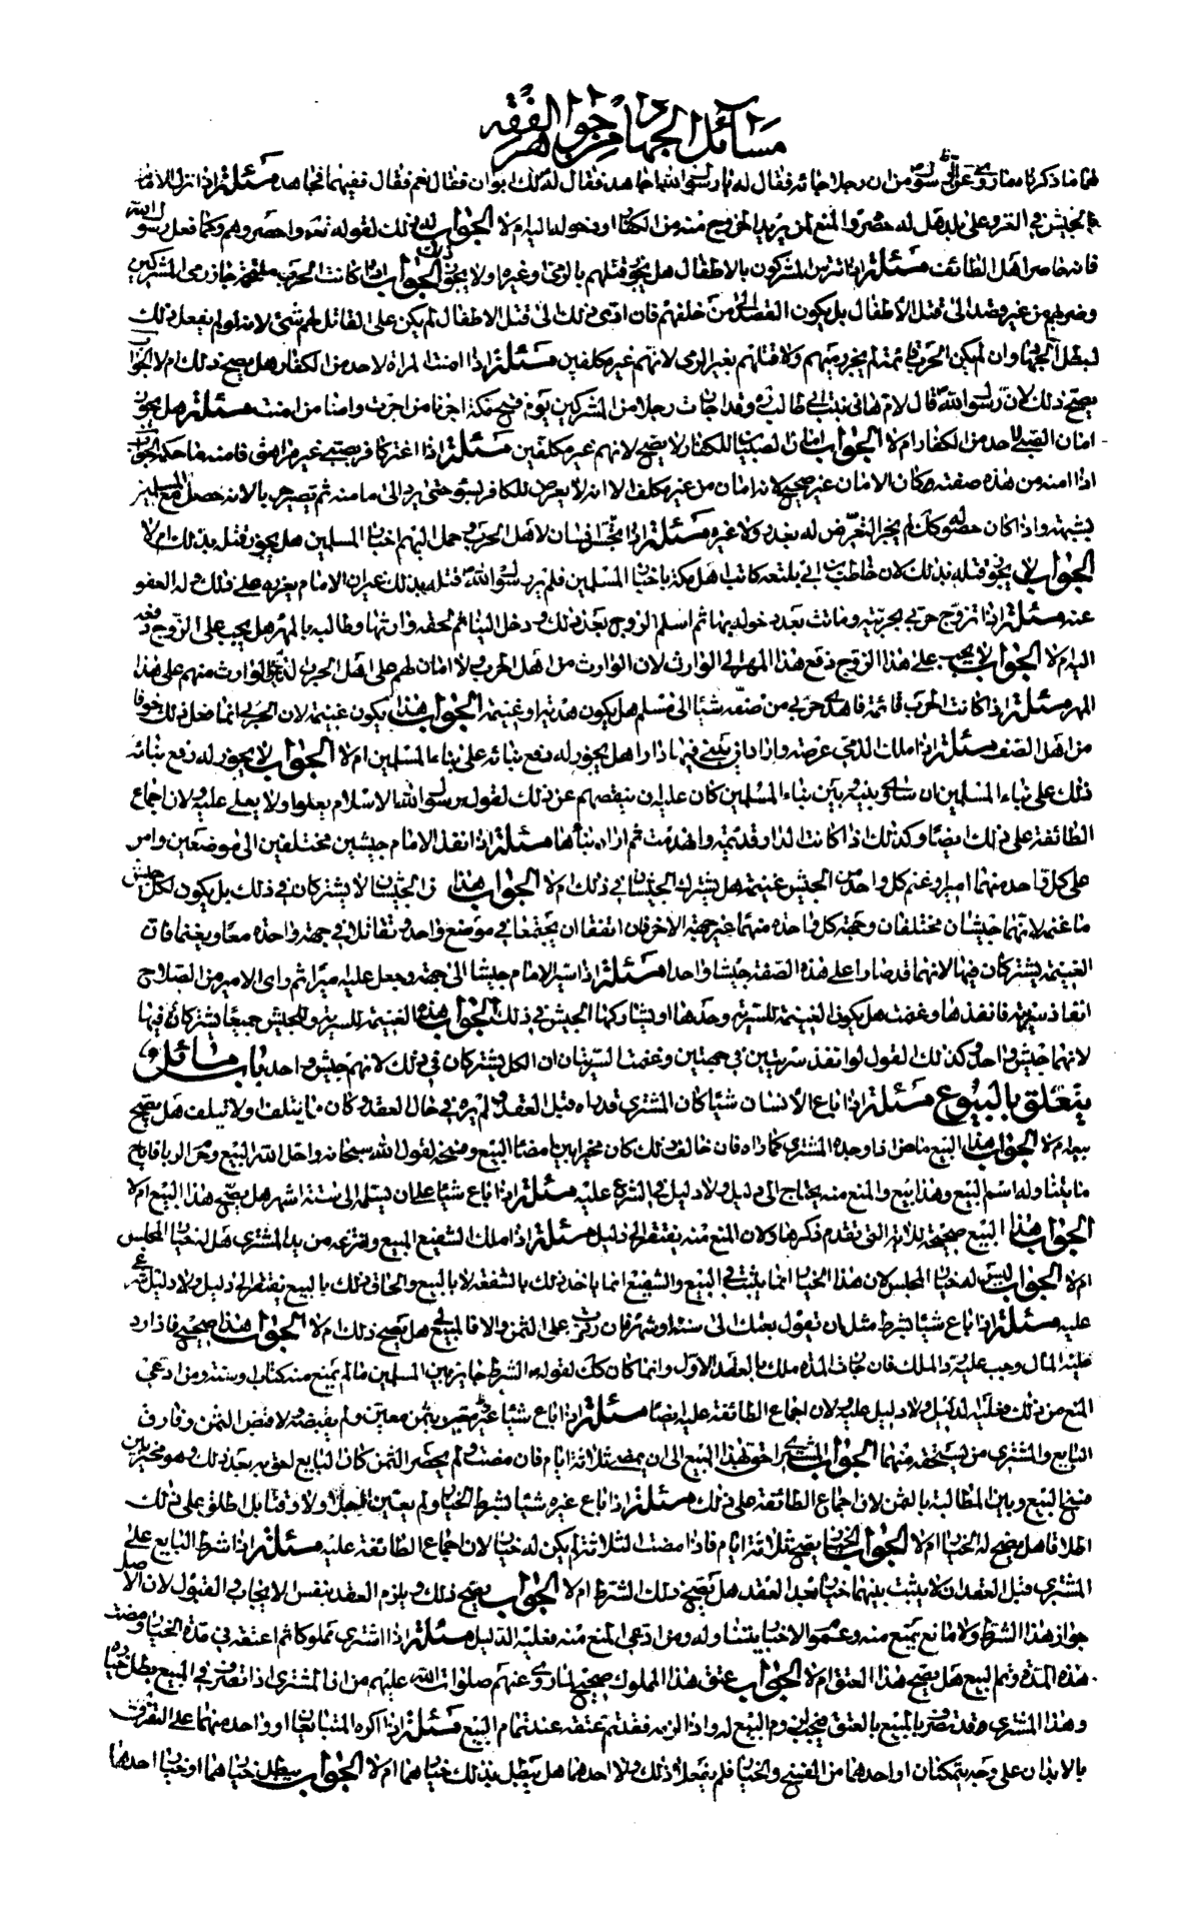 مسائل الجهاد من جواهر الفقه
لهما ما ذكرناه ما روى عن النبي من ان رجلا جائه فقال له يا رسول الله اجاهد فقال له لك ابوان فقال نعم فقال ففيهما فجاهد مسئلة اذا نزل الامام
بالجيش في الغزو على بلد هل له حصره والمنع لمن يريد الخروج منه من الكفار او دخوله اليه ام لا الجواب له ذلك لقوله تعه واحصروهم وكما فعل رسول الله
فانه حاصر اهل الطائف مسئلة اذا تترس المشركون بالاطفال هل يجوز قتلهم بالرمي وغيره او لا يجوز ذلك الجواب اذا كانت الحرب ملتحمة جاز رمى المشركين
وضربهم من غير قصد الى قتل الاطفال بل يكون القصد الى من خلفهم فان ادى ذلك الى قتل الاطفال لم يكن على القاتل لهم شئ لانه لو لم يفعل ذلك
لبطل الجهاد وان لم يكن الحرب قائمة لم يجز رميهم ولا قتلهم بغير الرمى لانهم غير مكلفين مسئلة اذا امنت المراة لاحد من الكفار هل يصح ذلك ام لا الجواب
يصح ذلك لان رسول الله قال لام هانى بنت ابي طالب وقد اجارت رجلا من المشركين يوم فتح مكة اجرنا من اجرت وامنا من امنت مسئلة هل يجوز
امان الصبي لاحد من الكفار ام لا الجواب امان الصبيان للكفار لا يصح لانهم غير مكلفين مسئلة اذا اغتر كافر بصبي غير مراهق فامنه ما حكمه الجواب
اذا امنه من هذه صفته وكان الامان غير صحيح لانه امان من غير مكلف الا انه لا يعرض للكافر بسوء حتى يرد الى مامنه ثم يصير حربا لانه حصل مع المسلمين
بشبهة واذا كان حصوله كك لم يجز التعرض له بغدر ولا غيره مسئلة اذا تجسس انسان لاهل الحرب وحمل اليهم اخبار المسلمين هل يجوز قتله بذلك ام لا
الجواب لا يجوز قتله بذلك لان حاطب بن ابي بلتعه كاتب اهل مكة باخبار المسلمين فلم ير رسول الله قتله بذلك غير ان الامام يعزره على ذلك وله العفو
عنه مسئلة اذا تزوج حربي بحربية وماتت بعد دخوله بها ثم اسلم الزوج بعد ذلك ودخل الينا ثم لحقه وارثها وطالبه بالمهر هل يجب على الزوج دفعه
اليه ام لا الجواب لا يجب على هذا الزوج دفع هذا المهر الى الوارث لان الوارث من اهل الحرب ولا امان لهم على اهل الحرب لذلك والوارث منهم على هذا
المهر مسئلة اذا كانت الحرب قائمة فاهدى حربي من صفه شيئا الى مسلم هل يكون هدية او غنيمة الجواب هذا يكون غنيمة لان الحربي انما فعل ذلك خوفا
من اهل الصف مسئلة اذا ملك الذمي عرصة واراد ان يبني فيها دارا هل يجوز له رفع بنائه على بناء المسلمين ام لا الجواب لا يجوز له رفع بنائه
ذلك على بناء المسلمين ان ساوى بنيه وبين بناء المسلمين كان عليه ان ينقصهم عن ذلك لقول رسول الله الاسلام يعلوا ولا يعلى عليه ولان اجماع
الطائفة على ذلك ايضا وكذلك اذا كانت الدار قديمة وانهدمت ثم اراد بنائها مسئلة اذا انفذ الامام جيشين مختلفين الى موضعين وامر
على كل واحد منهما امير وغنم كل واحد من الجيش غنيمة هل يشترك الجيشان في ذلك ام لا الجواب هذا ان الجيشان لا يشتركان في ذلك بل يكون لكل جيش
ما غنمه لانهما جيشان مختلفان وجهة كل واحدة منهما غير جهة الاخر فان اتفقا ان يجتمعا في موضع واحد وتقاتلا في جهة واحدة معا ويغنما فان
الغنيمة يشتركان فيها لانهما قد صارا على هذه الصفة جيشا واحدا مسئلة اذا سير الامام جيشا الى جهة وجعل عليه اميرا ثم راى الامير من الصلاح
انفاذ سرية فانفذها وغنمت هل يكون الغنيمة للسرية وحدها او يشاركها الجيش في ذلك الجواب هذه الغنيمة للسرية والجيش جميعا يشتركان فيها
لانهما جيش واحد وكذلك القول لو انفذ سريتين في جهتين وغنمت السريتان ان الكل يشتركان في ذلك لانهم جيش واحد باب مسائل
يتعلق بالبيوع مسئلة اذا باع الانسان شيئا كان المشتري قد راه قبل العقد ولم يره في حال العقد وكان مما يتلف او لا يتلف هل يصح
بيعه ام لا الجواب هذا البيع ماض اذا وجده المشتري كما راه فان خالف ذلك كان مخيرا بين امضاء البيع وفسخه لقول الله سبحانه واحل الله البيع وحرم الربا فاباح
ما يتناوله اسم البيع وهذا بيع والمنع منه يحتاج الى دليل ولا دليل في الشرع عليه مسئلة اذا باع شيئا على ان يسلمه الى ستة اشهر هل يصح هذا البيع ام لا
الجواب هذا البيع صحيح للاية التي تقدم ذكرها ولان المنع منه يفتقر الى دليل مسئلة اذا ملك الشفيع المبيع وانتزعه من يد المشتري هل له خيار المجلس
ام لا الجواب ليس له خيار المجلس لان هذا الخيار انما يثبت في البيع والشفيع انما ياخذ ذلك بالشفعة لا بالبيع والحاق ذلك بالبيع يفتقر الى دليل ولا دليل
عليه مسئلة اذا باع شيئا بشرط مثل ان يقول بعتك الى سنة او شهر فان رددت على الثمن والا فالمبيع لي هل يصح ذلك ام لا الجواب هذا صحيح فاذا رد
عليه المال وجب عليه رد الملك فان جاز المدة ملك بالعقد الاول وانما كان كك لقوله الشرط جايز بين المسلمين ما لم يمنع منه كتاب وسنة ومن ادعى
المنع من ذلك فعليه الدليل ولا دليل عليه ولان اجماع الطائفة عليه ايضا مسئلة اذا باع شيئا غير معين بثمن معين ولم يقبضه ولا قبض الثمن وفارق
البايع والمشتري من يستحقه منهما الجواب المشتري احق بهذا المبيع الى ان يمضى ثلاثة ايام فان مضت ولم يحضر الثمن كان البايع احق به بعد ذلك وهو مخير بين
فسخ البيع وبين المطالبة بالثمن لان اجماع الطائفة على ذلك مسئلة اذا باع غيره شيئا بشرط الخيار ولم يعين اجلا ولا وقتا بل اطلق على ذلك
اطلاقا هل يصح له الخيار ام لا الجواب الخيار يصح ثلاثة ايام فاذا مضت الثلاثة لم يكن له خيار لان اجماع الطائفة عليه مسئلة اذا شرط البايع على
المشتري قبل العقد ان لا يثبت بينهما خيار بعد العقد هل يصح ذلك الشرط ام لا الجواب يصح ذلك ويلزم العقد بنفس الايجاب والقبول لان الاصل
جواز هذا الشرط ولا مانع يمنع منه وعموم الاخبار يتناوله ومن ادعى المنع منه فعليه الدليل مسئلة اذا اشترى مملوكا ثم اعتقه في مدة الخيار ومضت
هذه المدة وتم البيع هل يصح هذا العتق ام لا الجواب عتق هذا المملوك صحيح لما روى عنهم صلوات الله عليهم من ان المشتري اذا تصرف في المبيع بطل خياره
وهذا المشتري قد تصرف بالمبيع بالعتق فيجب لزوم البيع له واذا لزمه فقد تم عتقه عند تمام البيع مسئلة اذا اكره المتبايعان او واحد منهما على التفرق
بالابدان على وجه يتمكنان او احدهما من الفسخ والخيار فلم يفعلا ذلك ولا احدهما هل يبطل بذلك خيارهما ام لا الجواب يبطل خيارهما او خيار احدهما